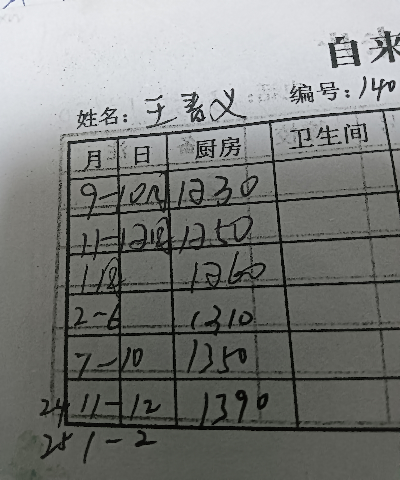 自来
姓名: 王春义 编号: 140
月 日 厨房 卫生间
9-10月 1230
11-12月 1250
1月 1260
2-6 1310
7-10 1350
24 11-12 1390
25 1-2